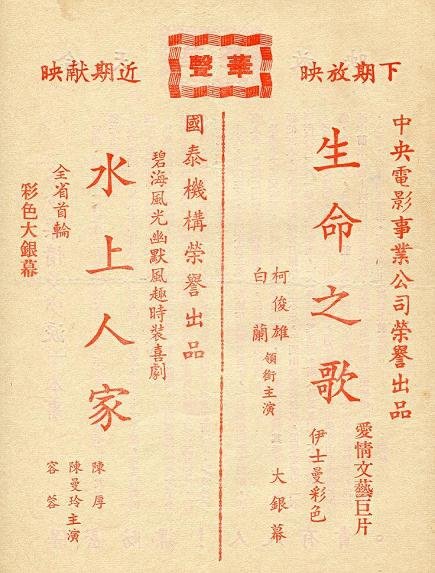 下期放映
華聲
近期献映
中央電影事業公司榮譽出品
生命之歌
愛情文藝巨片
伊士曼彩色
大銀幕
柯俊雄
白蘭
領銜主演
國泰機構榮譽出品
碧海風光幽默風趣時裝喜劇
水上人家
全省首輪
彩色大銀幕
陳厚
陳曼玲
容蓉
主演